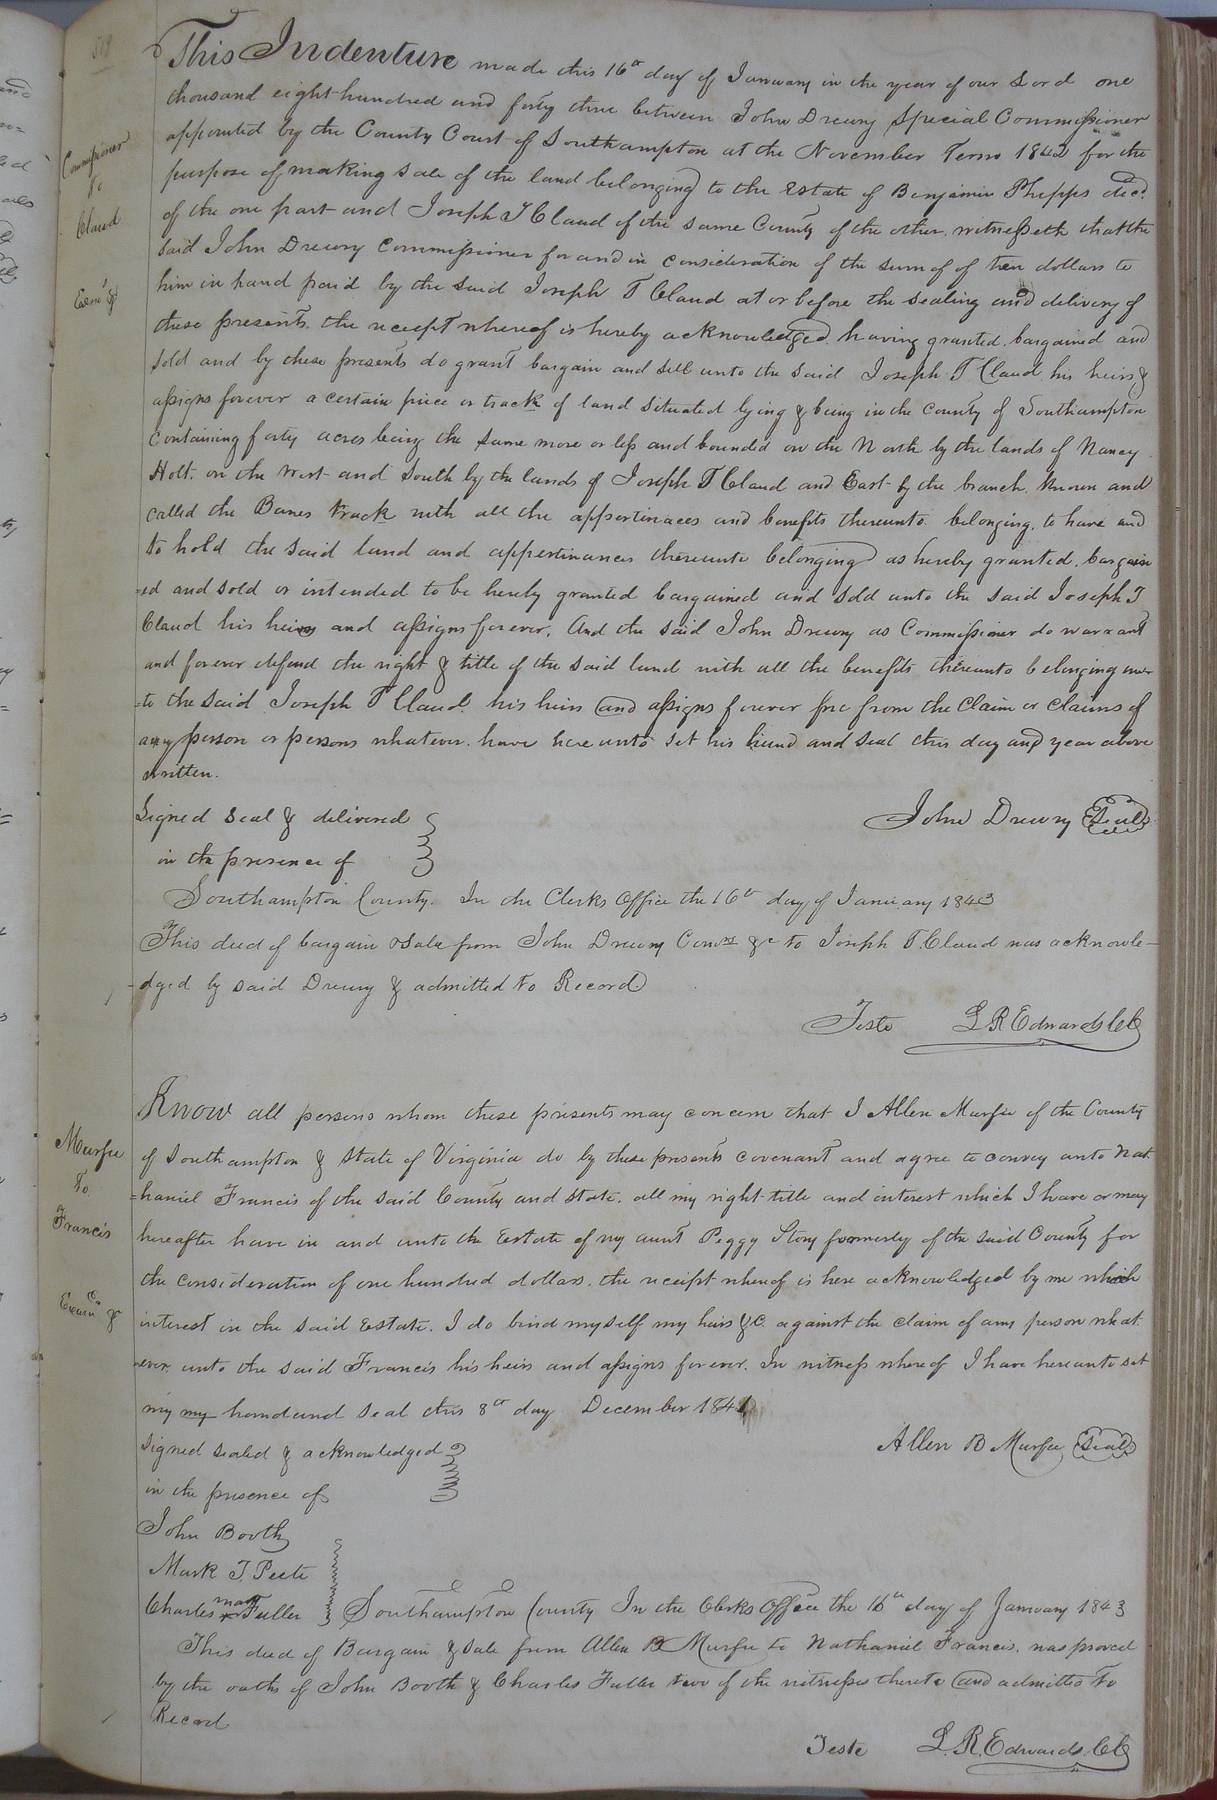 518
This Indenture made this 16th day of January in the year of our Lord one
thousand eight hundred and forty three between John Drewry Special Commissioner
appointed by the County Court of Southampton at the November Term 1842 for the
purpose of making sale of the land belonging to the Estate of Benjamin Phipps decd.
of the one part and Joseph T Claud of the same County of the other, witnesseth that the
said John Drewry Commissioner for and in consideration of the sum of of ten dollars to
him in hand paid by the said Joseph T Claud at or before the sealing and delivery of
these presents. the receipt whereof is hereby acknowledged, having granted, bargained and
sold and by these presents do grant bargain and sell unto the said Joseph T Claud his heirs &
assigns forever a certain piece or track of land situated lying & being in the County of Southampton
Containing forty acres being the same more or less and bounded on the North by the lands of Nancy
Holt. on the West and South by the lands of Joseph T Claud and East by the branch. Known and
called the Banes track with all the appertinaces and benefits thereunto belonging. to have and
to hold the said land and appertinances thereunto belonging as hereby granted, bargain
-ed and sold or intended to be hereby granted bargained and sold unto the said Joseph T
Claud his heirs and assigns forever. And the said John Drewry as Commissioner do warrant
and forever defend the right & title of the said land with all the benefits thereunto belonging un-
-to the said Joseph T Claud. his heirs and assigns forever free from the claim or claims of
any person or persons whatever. have here unto set his hand and seal this day and year above
written.
Signed Seal & delivered
in the presence of
John Drewry Seal
Southampton County. In the Clerks Office the 16th day of January 1843
This deed of bargain & sale from John Drewry Comr &c to Joseph T. Claud was acknowle-
-dged by said Drewry & admitted to Record
Teste L R Edwards CC
Commissioner
to
Claud
Examd &
Know all persons whom these presents may concern that I Allen Murfee of the County
of Southampton & State of Virginia do by these presents covenant and agree to convey unto Nat
=haniel Francis of the said County and State. all my right title and interest which I have or may
hereafter have in and unto the Estate of my aunt Peggy Story formerly of the said County for
the consideration of one hundred dollars. the receipt whereof is here acknowledged by me which
interest in the said Estate. I do bind myself my heirs &c. against the claim of any person what
ever unto the said Francis his heirs and assigns forever. In witness whereof I have hereunto set
my my hand and seal this 8th day December 1841
Signed sealed & acknowledged
in the presence of
Allen B Murfee Seal
John Booth
Mark T. Peete
Charles Fuller
Southampton County In the Clerks Office the 16th day of January 1843
This deed of Bargain & sale from Allen B Murfee to Nathaniel Francis. was proved
by the oaths of John Booth & Charles Fuller two of the witnesses thereto and admitted to
Record
Teste L. R. Edwards CC
Murfee
To
Francis
Examd &